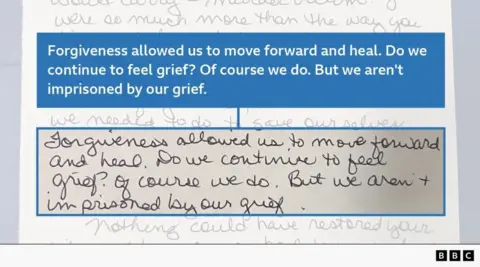 were so much more than the way you
Forgiveness allowed us to move forward and heal. Do we
continue to feel grief? Of course we do. But we aren't
imprisoned by our grief.
we needed to do to save ourselves
Forgiveness allowed us to move forward
and heal. Do we continue to feel
grief? Of course we do. But we aren't
imprisoned by our grief.
Nothing could have restored your
BBC